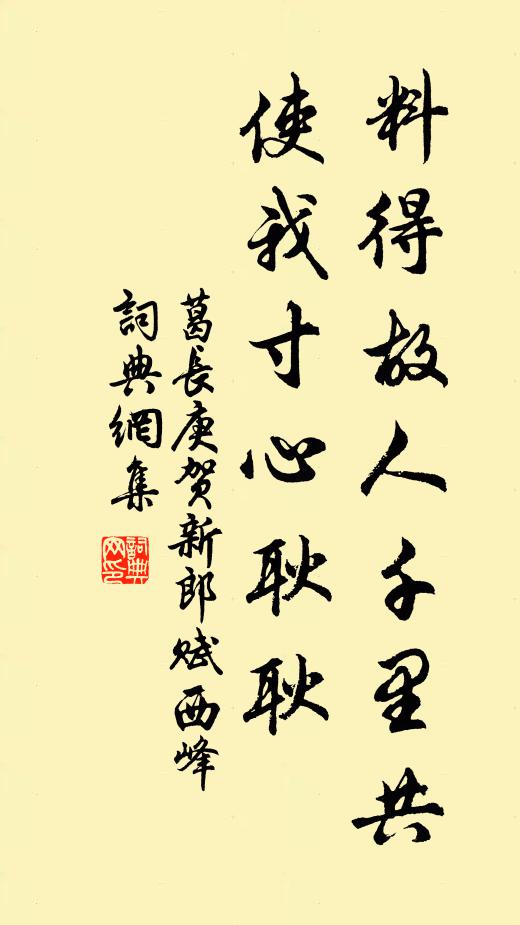 料得故人千里共
使我寸心耿耿
葛長庚贺新郎赋西峰
詞典網集
詞典网印